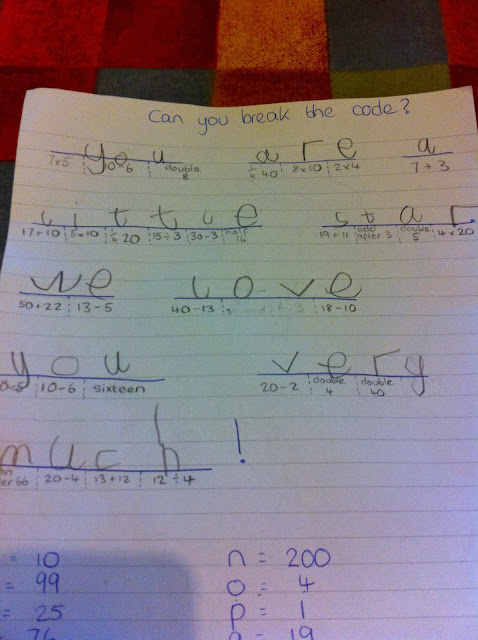 Can you break the code?
you are a
7x5 10-6 double 8 ¼ 40 8x10 2x4 7+3
little star
17+10 5x10 ¼ 20 15÷3 30-3 half 16 19+11 odd after 3 double 5 4x20
we love
50+22 13-5 40-13 18-10
you very
10-6 sixteen 20-2 double 4 double 40
much !
66 20-4 13+12 12÷4
= 10 n = 200
= 99 o = 4
= 25 p = 1
76 = 19